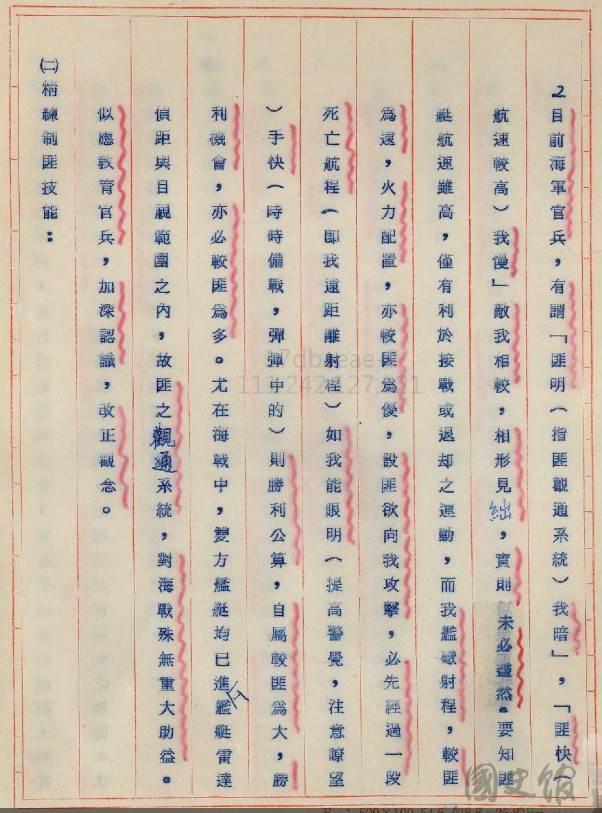 2.目前海軍官兵，有謂「匪明（指匪觀通系統）我暗」，「匪快（
航速較高）我慢」敵我相較，相形見絀，實則未必盡然。要知匪
艇航速雖高，僅有利於接戰或退却之運動，而我艦礮射程，較匪
為遠，火力配置，亦較匪為優，設匪欲向我攻擊，必先經過一段
死亡航程（即我遠距離射程）如我能眼明（提高警覺，注意瞭望
）手快（時時備戰，彈彈中的）則勝利公算，自屬較匪為大，勝
利機會，亦必較匪為多。尤在海戰中，雙方艦艇均已進入艦艇雷達
偵距與目視範圍之內，故匪之觀通系統，對海戰殊無重大助益。
似應教育官兵，加深認識，改正觀念。
㈡精練制匪技能：
國史館